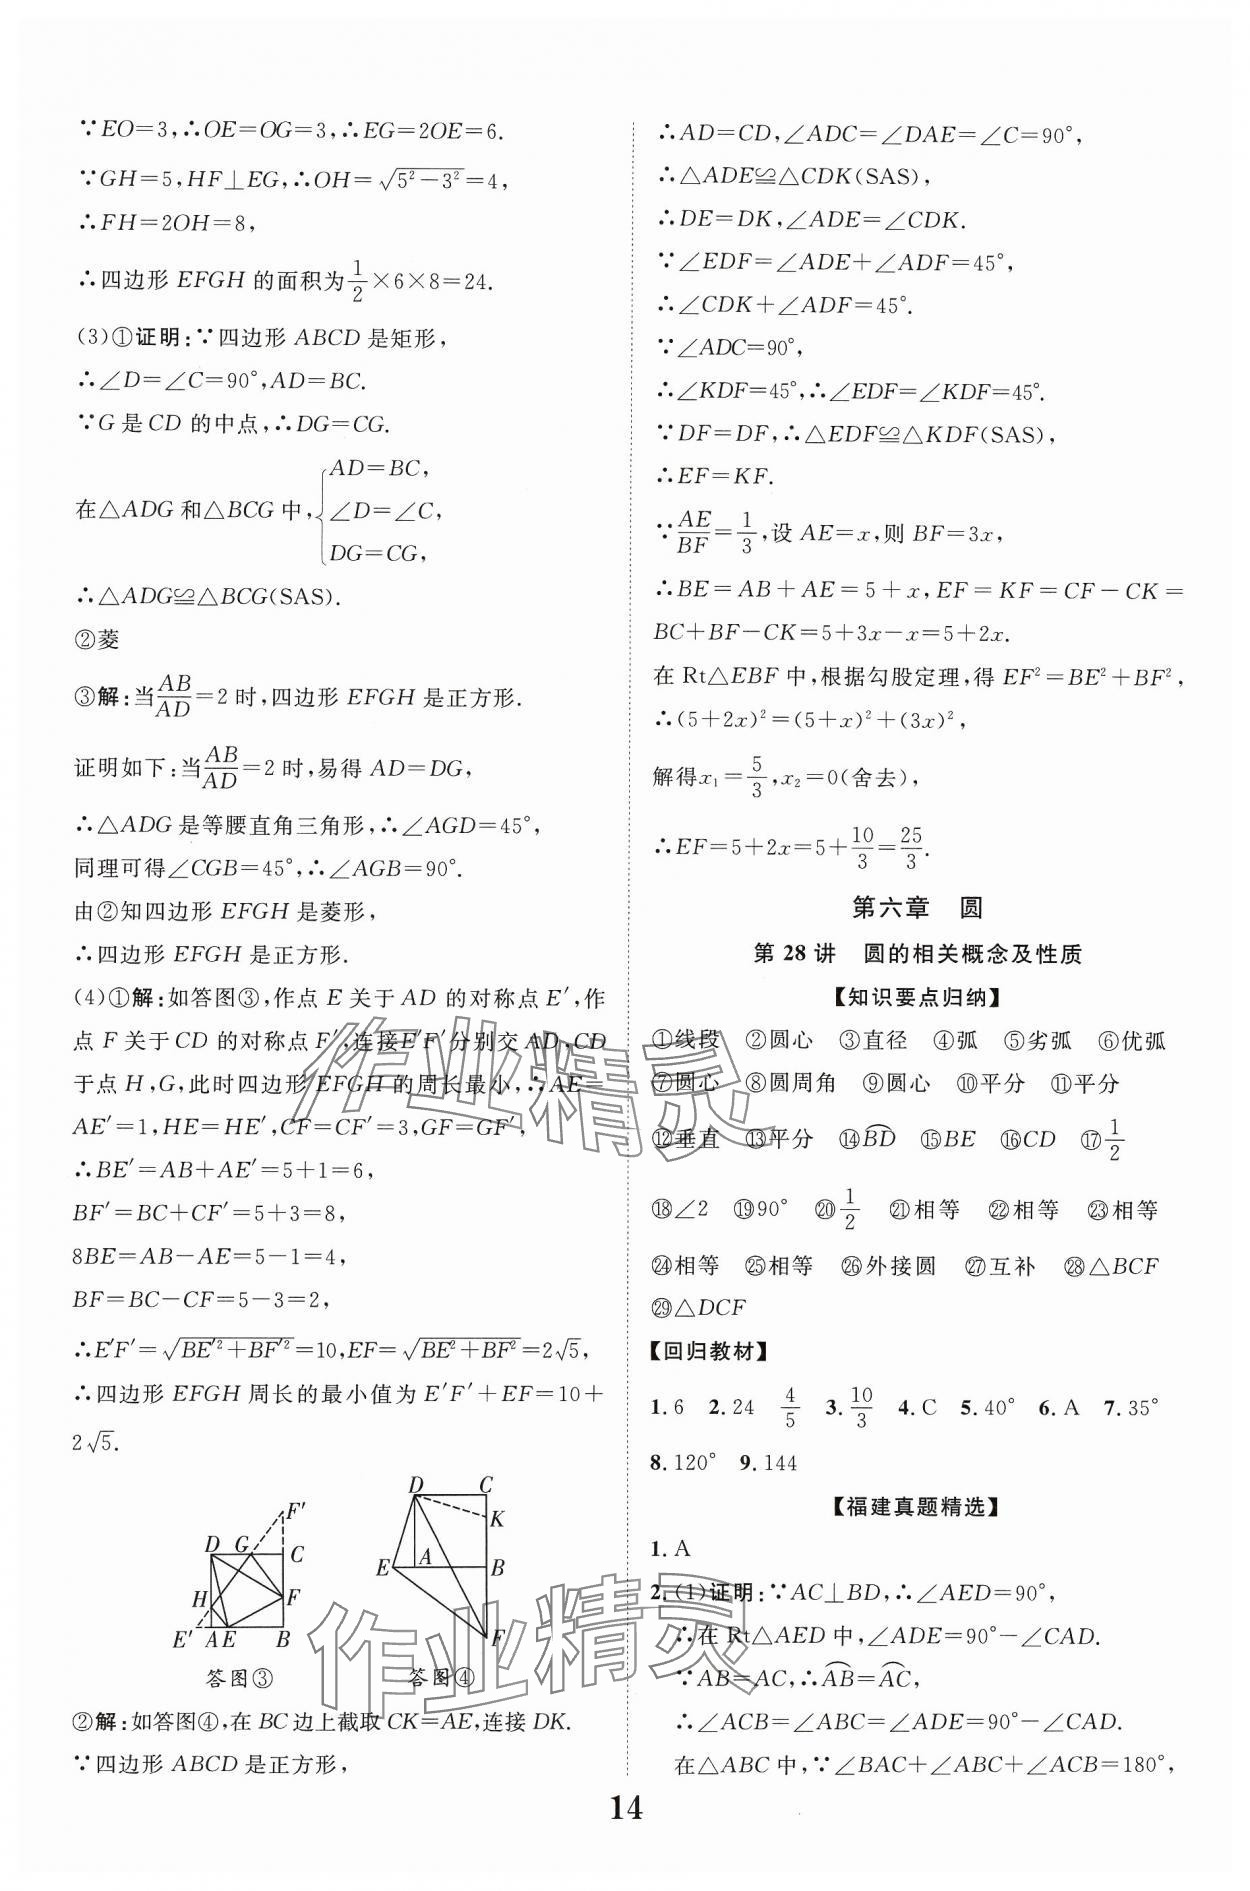 ∵EO=3,∴OE=OG=3,∴EG=2OE=6.
∵GH=5,HF⊥EG,∴OH=√(5²-3²)=4,
∴FH=2OH=8,
∴四边形 EFGH 的面积为1/2×6×8=24.
(3)①证明:∵四边形 ABCD 是矩形,
∴∠D=∠C=90°,AD=BC.
∵G 是 CD 的中点,∴DG=CG.
在△ADG 和△BCG 中,{AD=BC,
∠D=∠C,
DG=CG,
∴△ADG≌△BCG(SAS).
②菱
③解:当AB/AD=2 时,四边形 EFGH 是正方形.
证明如下:当AB/AD=2 时,易得 AD=DG,
∴△ADG 是等腰直角三角形,∴∠AGD=45°,
同理可得∠CGB=45°,∴∠AGB=90°.
由②知四边形 EFGH 是菱形,
∴四边形 EFGH 是正方形.
(4)①解:如答图③,作点 E 关于 AD 的对称点 E′,作
点 F 关于 CD 的对称点 F′,连接E′F′分别交 AD,CD
于点 H,G,此时四边形 EFGH 的周长最小,∴AE=
AE′=1,HE=HE′,CF=CF′=3,GF=GF′,
∴BE′=AB+AE′=5+1=6,
BF′=BC+CF′=5+3=8,
8BE=AB-AE=5-1=4,
BF=BC-CF=5-3=2,
∴E′F′=√(BE′²+BF′²)=10,EF=√(BE²+BF²)=2√5,
∴四边形 EFGH 周长的最小值为 E′F′+EF=10+
2√5.
F′
D G C
H F
E′ A E B
答图③
D C
K
E A B
F
答图④
②解:如答图④,在 BC 边上截取 CK=AE,连接 DK.
∵四边形 ABCD 是正方形,
∴AD=CD,∠ADC=∠DAE=∠C=90°,
∴△ADE≌△CDK(SAS),
∴DE=DK,∠ADE=∠CDK.
∵∠EDF=∠ADE+∠ADF=45°,
∴∠CDK+∠ADF=45°.
∵∠ADC=90°,
∴∠KDF=45°,∴∠EDF=∠KDF=45°.
∵DF=DF,∴△EDF≌△KDF(SAS),
∴EF=KF.
∵AE/BF=1/3,设 AE=x,则 BF=3x,
∴BE=AB+AE=5+x,EF=KF=CF-CK=
BC+BF-CK=5+3x-x=5+2x.
在 Rt△EBF 中,根据勾股定理,得 EF²=BE²+BF²,
∴(5+2x)²=(5+x)²+(3x)²,
解得x₁=5/3,x₂=0(舍去),
∴EF=5+2x=5+10/3=25/3.
第六章 圆
第 28 讲 圆的相关概念及性质
【知识要点归纳】
①线段 ②圆心 ③直径 ④弧 ⑤劣弧 ⑥优弧
⑦圆心 ⑧圆周角 ⑨圆心 ⑩平分 ⑪平分
⑫垂直 ⑬平分 ⑭B͡D ⑮BE ⑯CD ⑰1/2
⑱∠2 ⑲90° ⑳1/2 ㉑相等 ㉒相等 ㉓相等
㉔相等 ㉕相等 ㉖外接圆 ㉗互补 ㉘△BCF
㉙△DCF
【回归教材】
1.6 2.24 4/5 3.10/3 4.C 5.40° 6.A 7.35°
8.120° 9.144
【福建真题精选】
1.A
2.(1)证明:∵AC⊥BD,∴∠AED=90°,
∴在 Rt△AED 中,∠ADE=90°-∠CAD.
∵AB=AC,∴A͡B=A͡C,
∴∠ACB=∠ABC=∠ADE=90°-∠CAD.
在△ABC 中,∵∠BAC+∠ABC+∠ACB=180°,
14
作业精灵
作业精灵